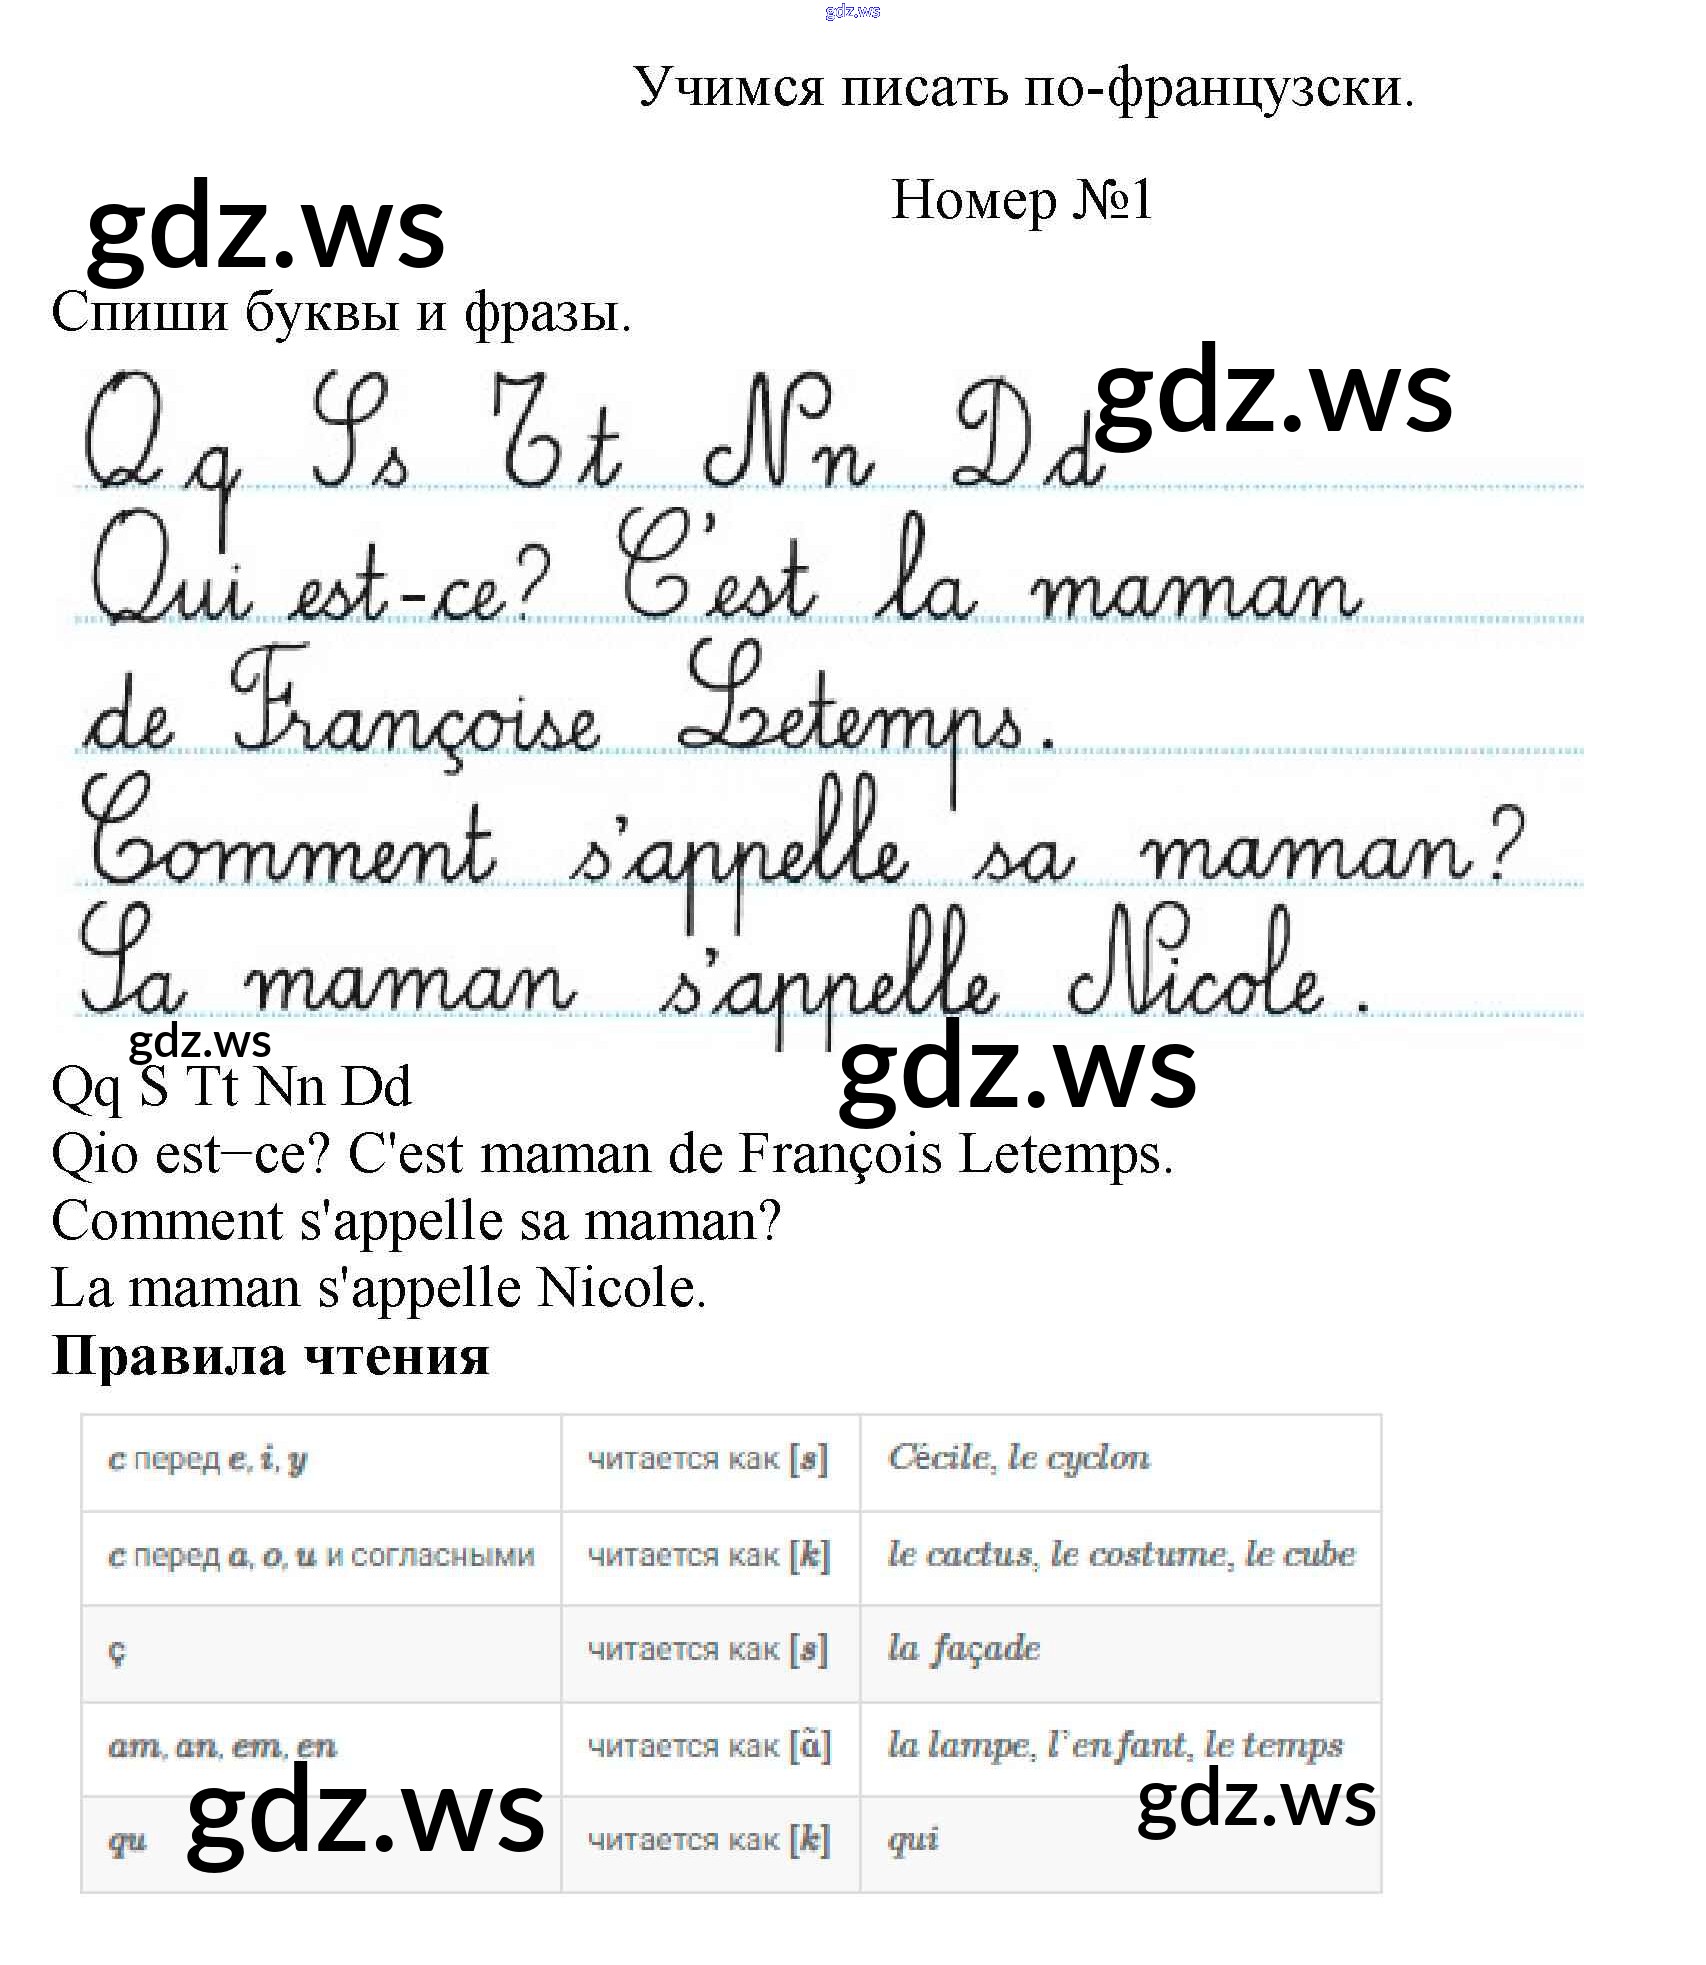 gdz.ws
Учимся писать по-французски.
Номер №1
gdz.ws
Спиши буквы и фразы.
gdz.ws
Qq Ss Tt Nn Dd
Qui est-ce? C'est la maman
de Françoise Letemps.
Comment s'appelle sa maman?
Sa maman s'appelle Nicole.
gdz.ws
gdz.ws
Qq S Tt Nn Dd
Qio est−ce? C'est maman de François Letemps.
Comment s'appelle sa maman?
La maman s'appelle Nicole.
Правила чтения
c перед e, i, y читается как [s] Cécile, le cyclon
c перед a, o, u и согласными читается как [k] le cactus, le costume, le cube
ç читается как [s] la façade
am, an, em, en читается как [ã] la lampe, l`enfant, le temps
gdz.ws
gdz.ws
qu читается как [k] qui